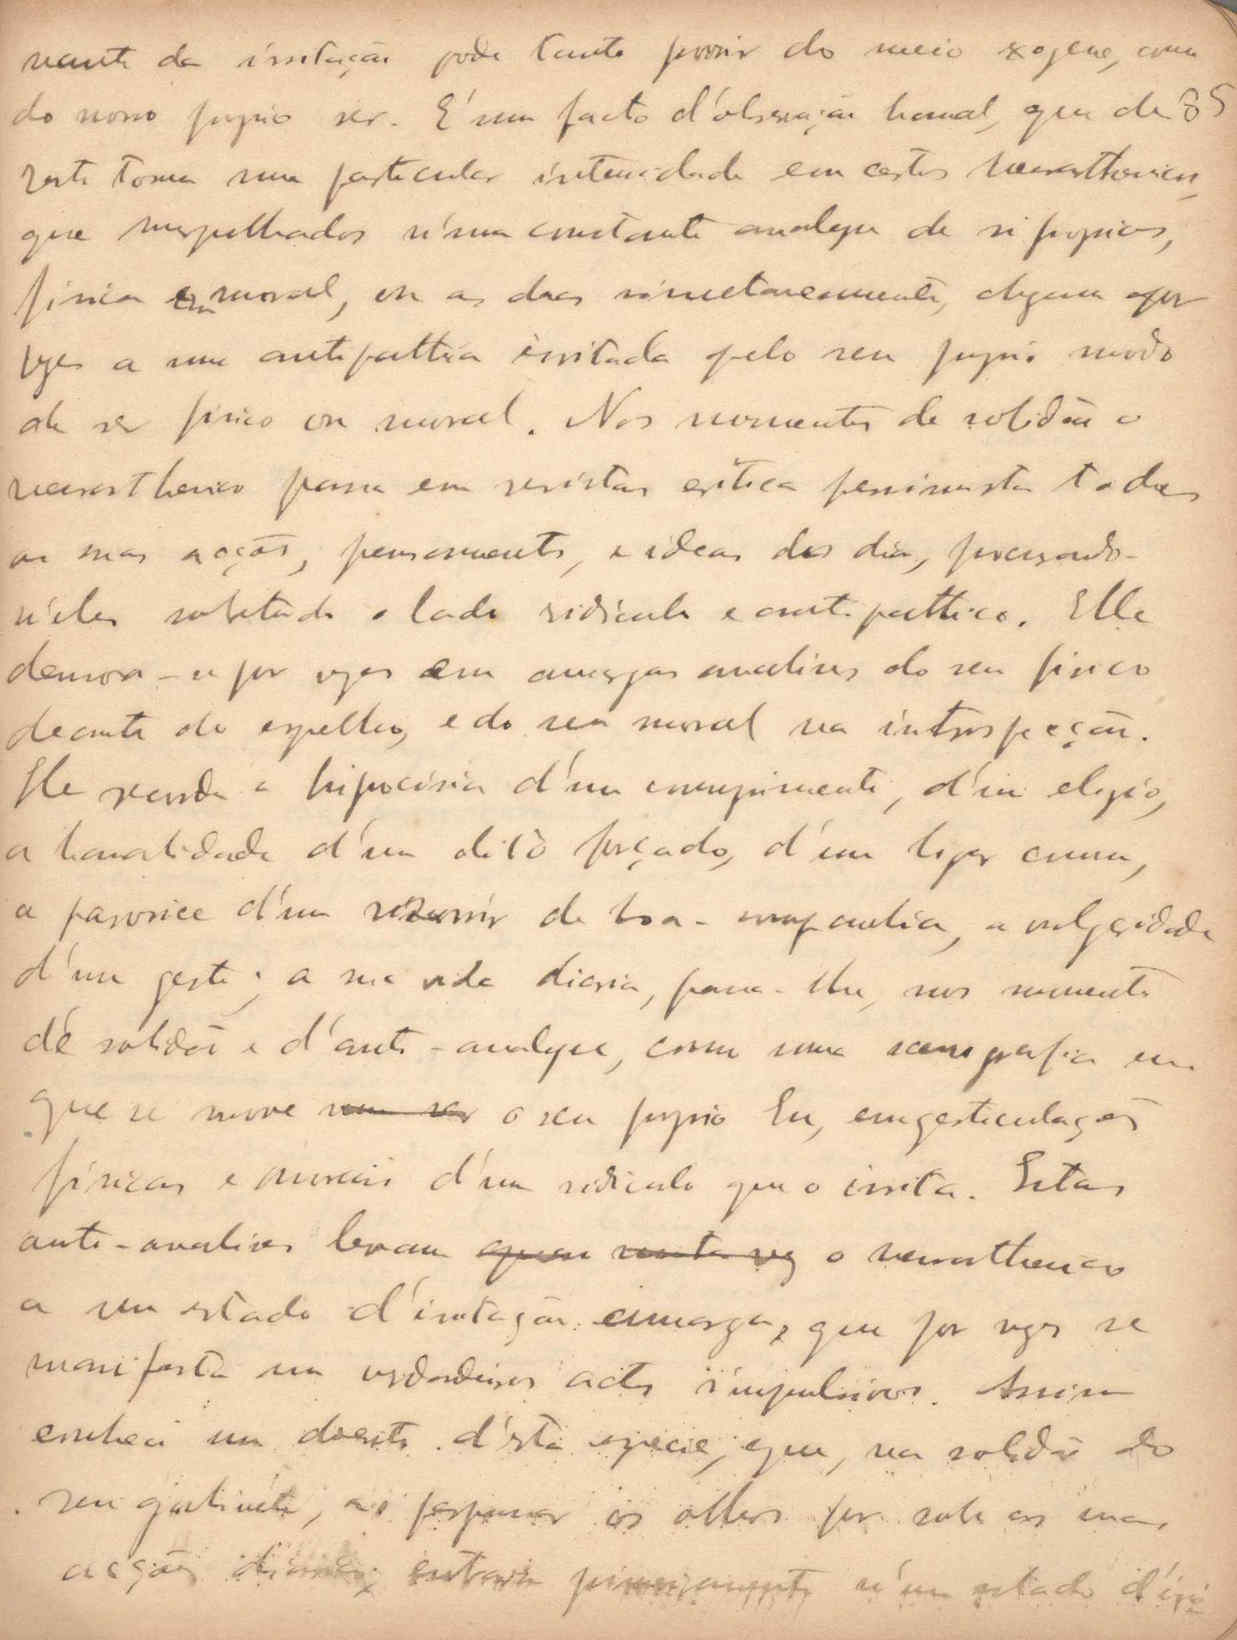 nante da irritação pode tanto provir do meio exogeno, como
do nosso proprio ser. E' um facto d'observação banal, que de 85
resto toma uma particular intensidade em certos neurasthenicos,
que mergulhados n'uma constante analyse de si proprios,
fisica ou moral, ou as duas simultaneamente, chegam por
vezes a uma antipathia irritada pelo seu proprio modo
de ser fisico ou moral. Nos momentos de solidão o
neurasthenico passa em revista critica pessimista todas
as suas acções, pensamentos, e ideas do dia, procurando-
n'elas sobretudo o lado ridiculo e antipathico. Elle
demora-se por vezes em amargas analises do seu fisico
deante do espelho, e do seu moral na introspecção.
Elle a hipocrisia d'um comprimento, d'um elogio,
a banalidade d'um dito forçado, d'um logar comum,
a parvoice d'um sorrir de boa-companhia, a vulgaridade
d'um gesto; a sua vida diaria, passa-lhe, nos momentos
de solidão e d'auto-analyse, como uma scenografia em
que se move num ser o seu proprio Eu, em gesticulações
fisicas e morais d'um ridiculo que o irrita. Estas
auto-analises levam o neurasthenico
a um estado d'irritação amarga, que por vezes se
manifesta em verdadeiros actos impulsivos. Assim
conheci um doente d'esta especie, que, na solidão do
seu gabinete, ao perpassar os olhos por sobre as suas
acções diarias, entrava n'um estado d'irri